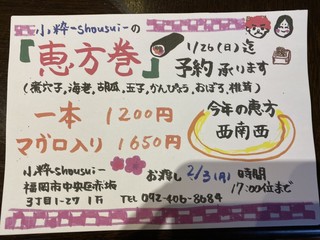 小粋-shousui-の
「恵方巻」
1/26(日)迄
予約承ります
(煮穴子,海老,胡瓜,玉子,かんぴょう,おぼろ,椎茸)
一本 1200円
マグロ入り 1650円
今年の恵方
西南西
小粋-shousui-
福岡市中央区赤坂
3丁目1-27 1F
お渡し 2/3(月) 時間
17:00位まで
TEL 092-406-8684